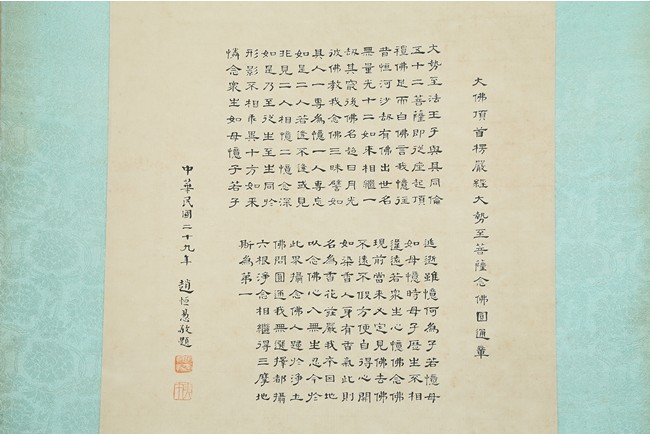 大佛頂首楞嚴經大勢至菩薩念佛圓通章
大勢至法王子與其同倫
五十二菩薩即從座起頂
禮佛足而白佛言我憶往
昔恒河沙劫有佛出世名
無量光十二如來相繼一
劫其最後佛名超日月光
彼佛教我念佛三昧譬如
人一專為憶一人專忘
如是二人若逢不逢或見
非見二人相憶二憶念深
如是乃至從生至生同於
形影不相乖異十方如來
憐念眾生如母憶子若子
逃逝雖憶何為子若憶母
如母憶時母子歷生不相
違遠若眾生心憶佛念佛
現前當來必定見佛去佛
不遠不假方便自得心開
如染香人身有香氣此則
名為香光莊嚴我本因地
以念佛心入無生忍今於
此界攝念佛人歸於淨土
佛問圓通我無選擇都攝
六根淨念相繼得三摩地
斯為第一
中華民國二十九年 趙恒敬題